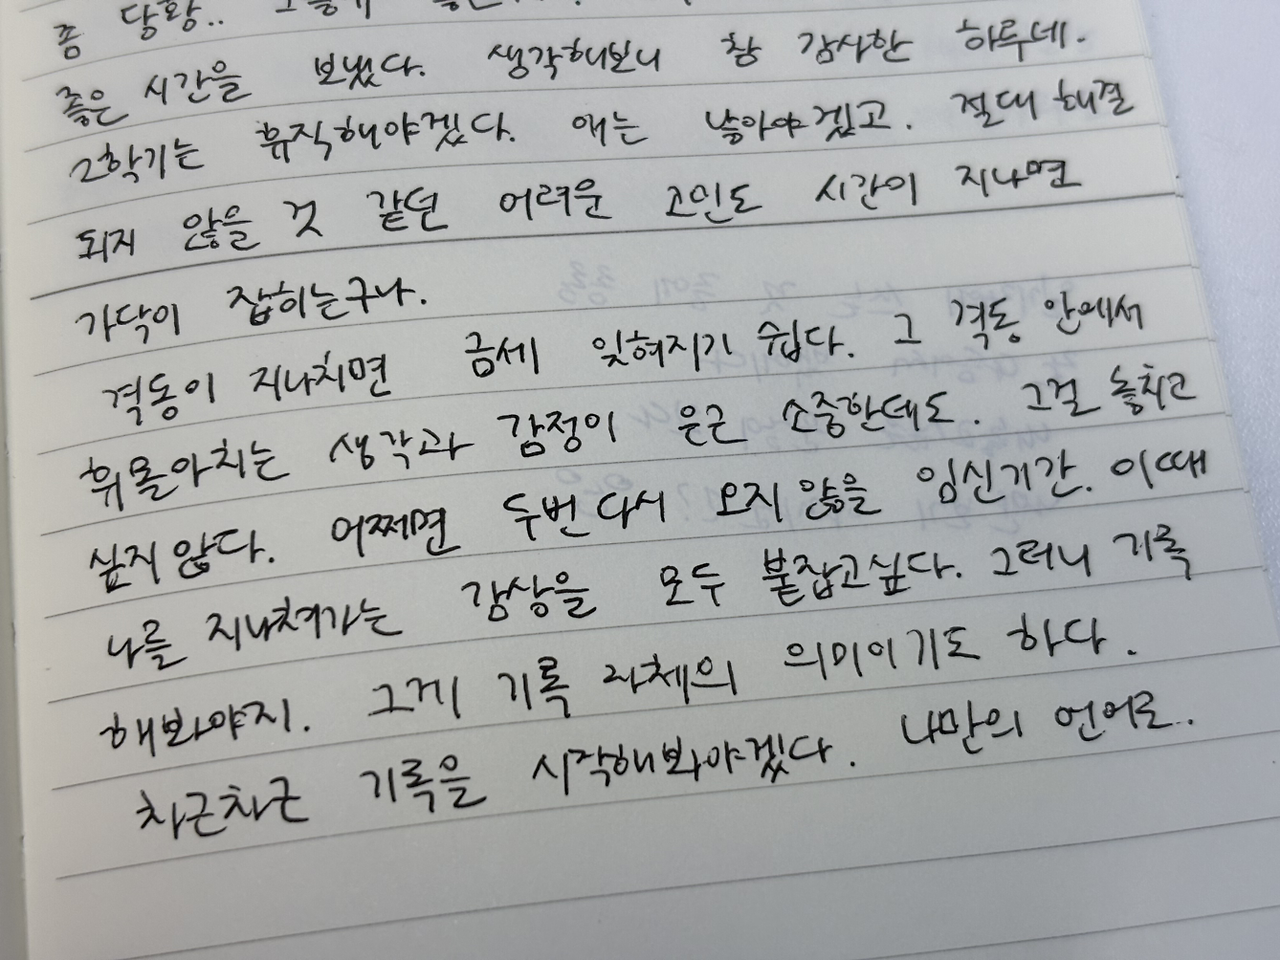 좀 당황.. 그렇게
좋은 시간을 보냈다. 생각해보니 참 감사한 하루네.
2학기는 휴직해야겠다. 애는 낳아야겠고. 절대 해결
되지 않을 것 같던 어려운 고민도 시간이 지나면
가닥이 잡히는구나.
격동이 지나치면 금세 잊혀지기 쉽다. 그 격동 안에서
휘몰아치는 생각과 감정이 은근 소중한데도. 그걸 놓치고
싶지 않다. 어쩌면 두번 다시 오지 않을 임신기간. 이때
나를 지나쳐가는 감상을 모두 붙잡고싶다. 그러니 기록
해봐야지. 그게 기록 자체의 의미이기도 하다.
차근차근 기록을 시작해봐야겠다. 나만의 언어로.